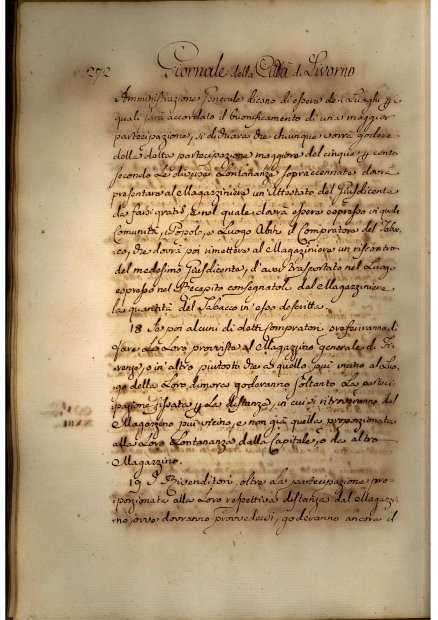 272 Giornale della Città di Livorno
Amministrazione Generale dicano di essere dei Luoghi p i
quali sarà accordato il buonificamento di una maggior
partecipazione, si dichiara che chiunque vorrà godere
della detta partecipazione maggiore del cinque p cento
secondo le diverse Lontananze sopraccennate dovrà
presentare al Magazziniere un'Attestato del Giusdicente
da farsi gratis, e nel quale dovrà essere espresso in quale
Comunità, Popolo, e Luogo Abiti il Compratore del Tabac-
co, che dovrà poi rimettere al Magazziniere un riscontro
del medesimo Giusdicente, d'aver trasportato nel Luogo
espresso nel Recapito consegnatoli dal Magazziniere
la quantità del Tabacco in esso descritta.
18 Se poi alcuni di detti compratori preferiranno di
fare la Loro provvista al Magazzino generale di Fi-
renze, o in altro piuttosto che a quello più vicino al Luo-
go della Loro dimora goderanno soltanto la parteci-
pazione fissata p la distanza, in cui si ritroveranno dal
Magazzino più vicino, e non già quella proporzionata
alla Loro Lontananza dalla Capitale, o da altro
Magazzino.
19 I Rivenditori, oltre la partecipazione pro-
porzionata alla Loro respettiva distanza dal Magazzi-
no, ove dovranno provvedersi, goderanno ancora il